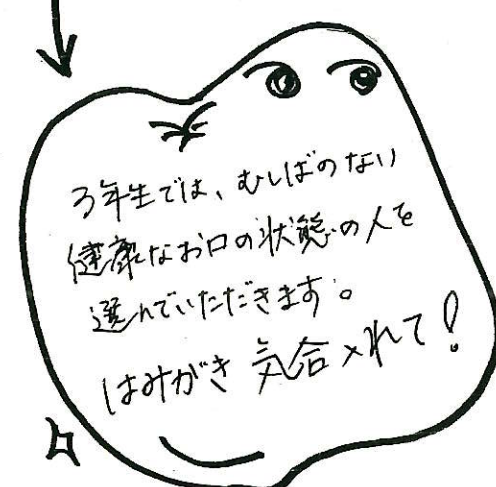 3年生では、むしばのない
健康なお口の状態の人を
選んでいただきます。
はみがき 気合入れて!